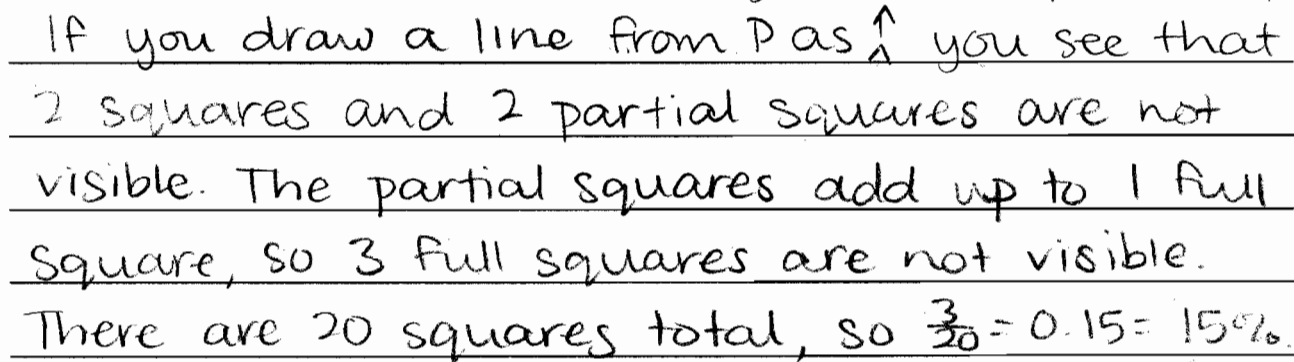 If you draw a line from D as ↑ you see that
2 squares and 2 partial squares are not
visible. The partial squares add up to 1 full
square, so 3 full squares are not visible.
There are 20 squares total, so 3/20 = 0.15 = 15%.